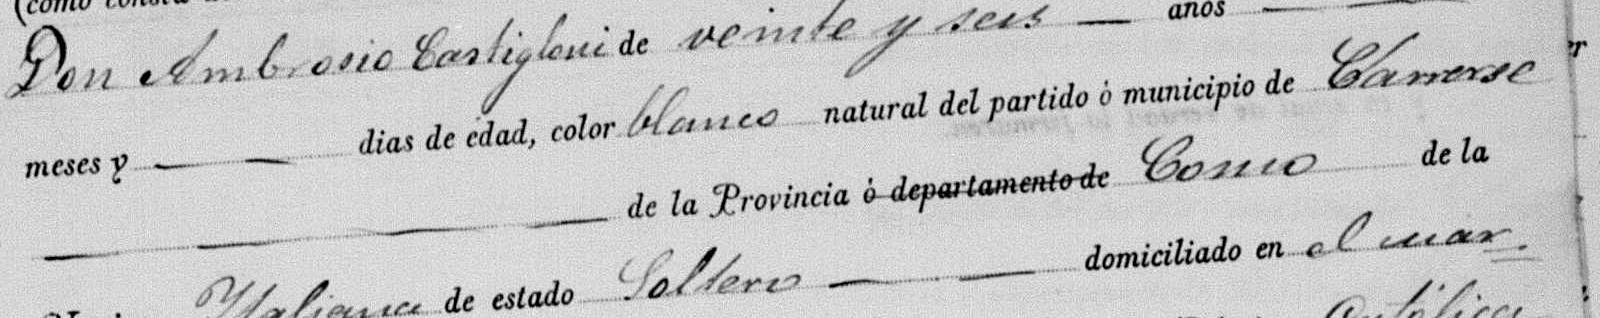 (como consta
Don Ambrosio Castigloni de veinte y seis — años —
meses y — — dias de edad, color blanco natural del partido ó municipio de
— — — de la Provincia ó departamento de Como de la
Italiana de estado Soltero — — domiciliado en el mar.
Católica